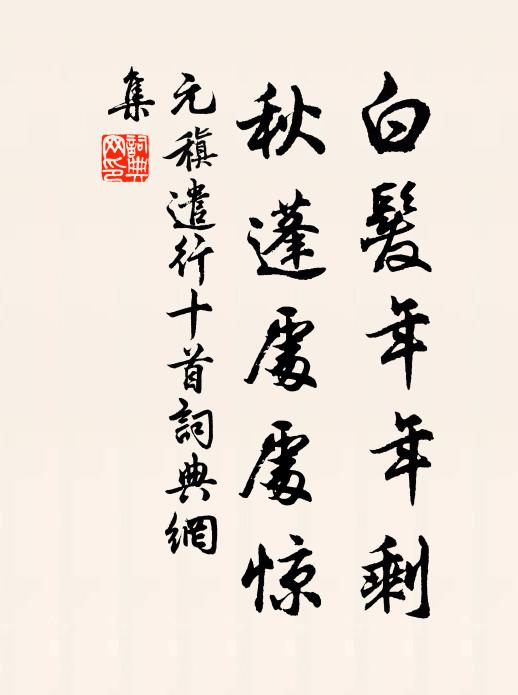 白髮年年剩
秋蓬處處惊
元稹遣行十首詞典網
集
詞典
网印